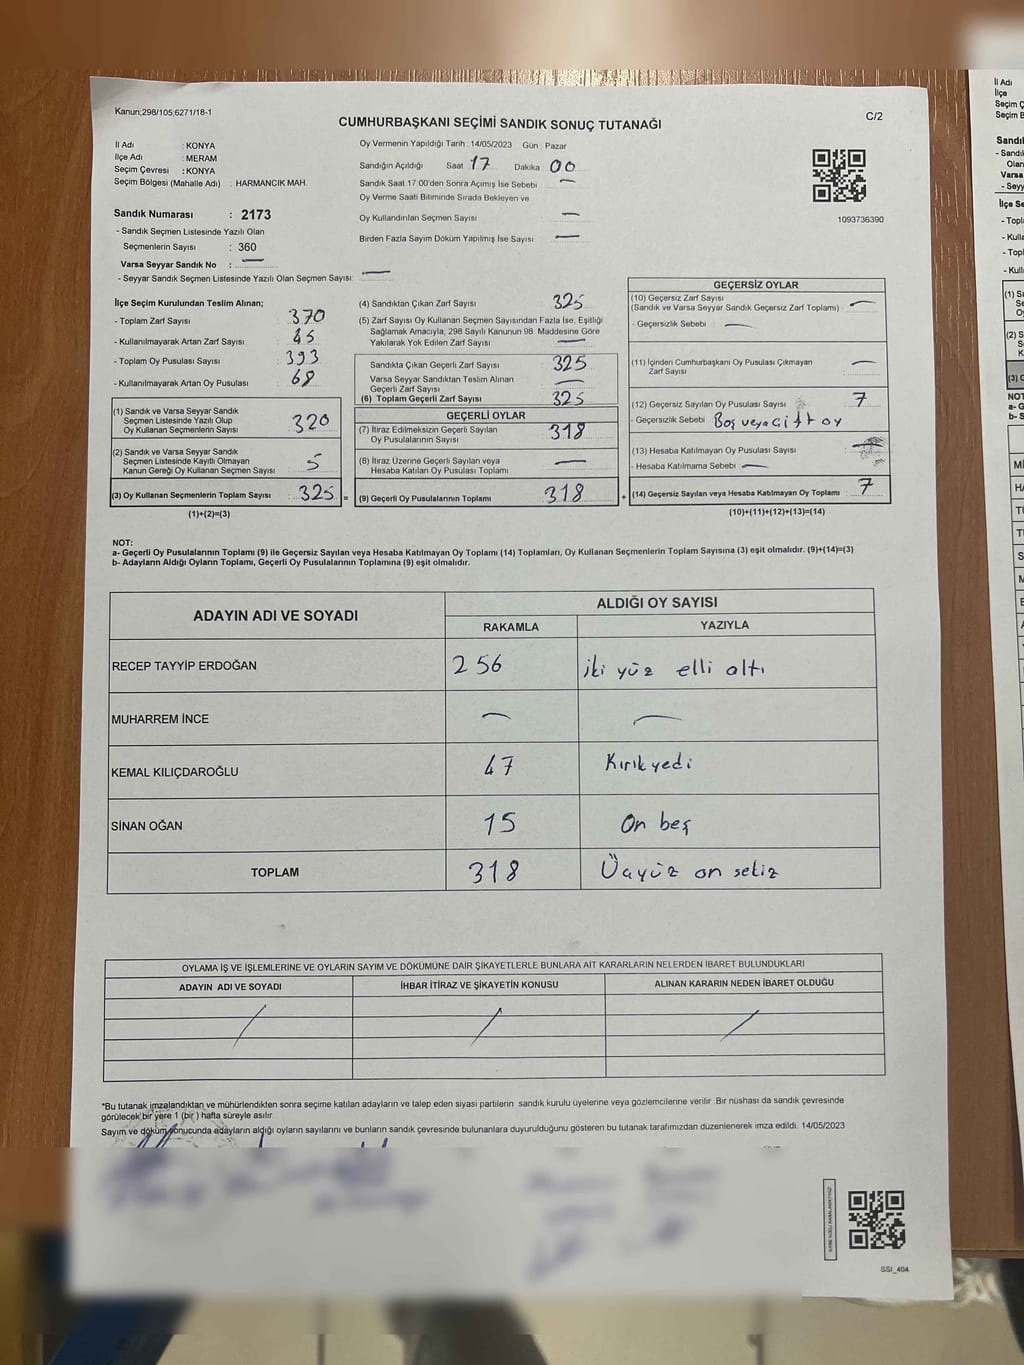 Kanun;298/105;6271/18-1
C/2
CUMHURBAŞKANI SEÇİMİ SANDIK SONUÇ TUTANAĞI
İl Adı : KONYA
İlçe Adı : MERAM
Seçim Çevresi : KONYA
Seçim Bölgesi (Mahalle Adı) : HARMANCIK MAH.
Sandık Numarası : 2173
- Sandık Seçmen Listesinde Yazılı Olan
Seçmenlerin Sayısı : 360
Varsa Seyyar Sandık No : —
- Seyyar Sandık Seçmen Listesinde Yazılı Olan Seçmen Sayısı: —
Oy Vermenin Yapıldığı Tarih : 14/05/2023 Gün : Pazar
Sandığın Açıldığı Saat 17 Dakika 00
Sandık Saat 17:00'den Sonra Açımış İse Sebebi —
Oy Verme Saati Bitiminde Sırada Bekleyen ve
Oy Kullandırılan Seçmen Sayısı —
Birden Fazla Sayım Döküm Yapılmış İse Sayısı —
1093736390
İlçe Seçim Kurulundan Teslim Alınan;
- Toplam Zarf Sayısı : 370
- Kullanılmayarak Artan Zarf Sayısı : 45
- Toplam Oy Pusulası Sayısı : 393
- Kullanılmayarak Artan Oy Pusulası : 68
(1) Sandık ve Varsa Seyyar Sandık
Seçmen Listesinde Yazılı Olup
Oy Kullanan Seçmenlerin Sayısı : 320
(2) Sandık ve Varsa Seyyar Sandık
Seçmen Listesinde Kayıtlı Olmayan
Kanun Gereği Oy Kullanan Seçmen Sayısı : 5
(3) Oy Kullanan Seçmenlerin Toplam Sayısı : 325 =
(1)+(2)=(3)
(4) Sandıktan Çıkan Zarf Sayısı 325
(5) Zarf Sayısı Oy Kullanan Seçmen Sayısından Fazla İse, Eşitliği
Sağlamak Amacıyla, 298 Sayılı Kanunun 98. Maddesine Göre
Yakılarak Yok Edilen Zarf Sayısı —
Sandıkta Çıkan Geçerli Zarf Sayısı 325
Varsa Seyyar Sandıktan Teslim Alınan
Geçerli Zarf Sayısı —
(6) Toplam Geçerli Zarf Sayısı 325
GEÇERLİ OYLAR
(7) İtiraz Edilmeksizin Geçerli Sayılan
Oy Pusulalarının Sayısı 318
(8) İtiraz Üzerine Geçerli Sayılan veya
Hesaba Katılan Oy Pusulası Toplamı —
(9) Geçerli Oy Pusulalarının Toplamı 318 +
GEÇERSİZ OYLAR
(10) Geçersiz Zarf Sayısı
(Sandık ve Varsa Seyyar Sandık Geçersiz Zarf Toplamı) —
- Geçersizlik Sebebi : —
(11) İçinden Cumhurbaşkanı Oy Pusulası Çıkmayan
Zarf Sayısı —
(12) Geçersiz Sayılan Oy Pusulası Sayısı : 7
- Geçersizlik Sebebi Boş veya Çift oy
(13) Hesaba Katılmayan Oy Pusulası Sayısı —
- Hesaba Katılmama Sebebi : —
(14) Geçersiz Sayılan veya Hesaba Katılmayan Oy Toplamı : 7
(10)+(11)+(12)+(13)=(14)
NOT:
a- Geçerli Oy Pusulalarının Toplamı (9) ile Geçersiz Sayılan veya Hesaba Katılmayan Oy Toplamı (14) Toplamları, Oy Kullanan Seçmenlerin Toplam Sayısına (3) eşit olmalıdır. (9)+(14)=(3)
b- Adayların Aldığı Oyların Toplamı, Geçerli Oy Pusulalarının Toplamına (9) eşit olmalıdır.
ADAYIN ADI VE SOYADI
ALDIĞI OY SAYISI
RAKAMLA YAZIYLA
RECEP TAYYİP ERDOĞAN 256 iki yüz elli altı
MUHARREM İNCE — —
KEMAL KILIÇDAROĞLU 47 Kırık yedi
SİNAN OĞAN 15 On beş
TOPLAM 318 Üçyüz on sekiz
OYLAMA İŞ VE İŞLEMLERİNE VE OYLARIN SAYIM VE DÖKÜMÜNE DAİR ŞİKAYETLERLE BUNLARA AİT KARARLARIN NELERDEN İBARET BULUNDUKLARI
ADAYIN ADI VE SOYADI İHBAR İTİRAZ VE ŞİKAYETİN KONUSU ALINAN KARARIN NEDEN İBARET OLDUĞU
/ / /
*Bu tutanak imzalandıktan ve mühürlendikten sonra seçime katılan adayların ve talep eden siyasi partilerin sandık kurulu üyelerine veya gözlemcilerine verilir. Bir nüshası da sandık çevresinde
görülecek bir yere 1 (bir) hafta süreyle asılır.
Sayım ve döküm sonucunda adayların aldığı oyların sayılarını ve bunların sandık çevresinde bulunanlara duyurulduğunu gösteren bu tutanak tarafımızdan düzenlenerek imza edildi. 14/05/2023
SSI_404
İl Adı
İlçe